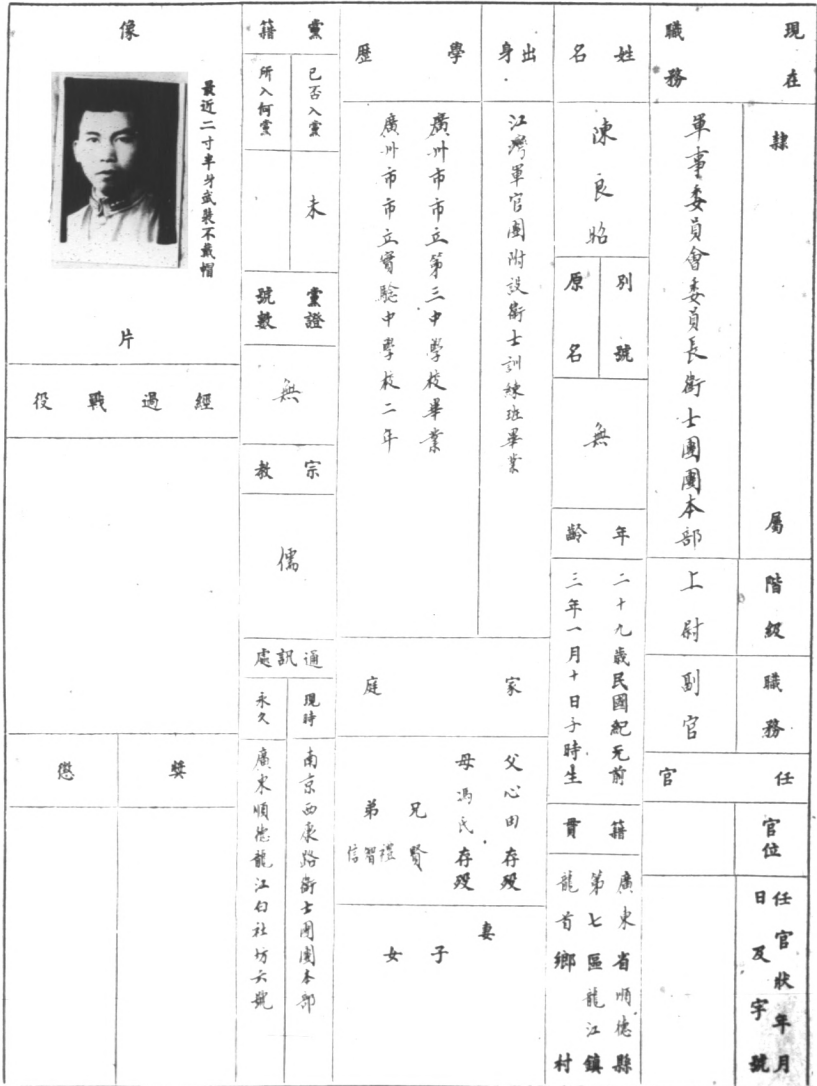 現在職務
隸屬
軍事委員會委員長衛士團團本部
階級
上尉
職務
副官
任官
官位
任官狀年月日及字號
姓名
陳良昭
別號
原名
無
年齡
二十九歲民國紀元前
三年一月十日子時生
籍貫
廣東省順德縣
第七區龍江鎮
龍首鄉村
出身
江灣軍官團附設衛士訓練班畢業
學歷
廣州市市立第三中學校畢業
廣州市市立實驗中學校二年
家庭
父心田存歿
母馮氏存歿
兄賢
弟禮智信
妻
子
女
黨籍
已否入黨
未
所入何黨
黨證號數
無
宗教
儒
通訊處
現時
南京西康路衛士團團本部
永久
廣東順德龍江白社坊六號
像片
最近二寸半身武裝不戴帽
經過戰役
獎
懲